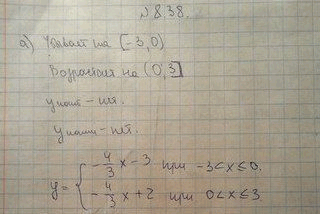 №8.38.
а) Убывает на [-3,0)
Возрастает на (0,3]
у наиб – нет.
у наим – нет.
y = { -4/3 x - 3 при -3<x≤0.
-4/3 x + 2 при 0<x≤3